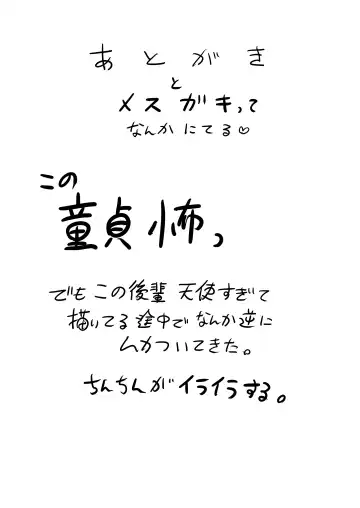 あとがき
と
メスガキって
なんかにてる♡
この
童貞怖っ
でもこの後輩天使すぎて
描いてる途中でなんか逆に
ムカついてきた。
ちんちんがイライラする。